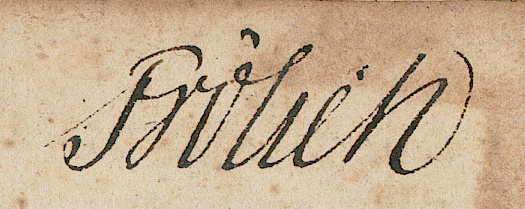 Frölich